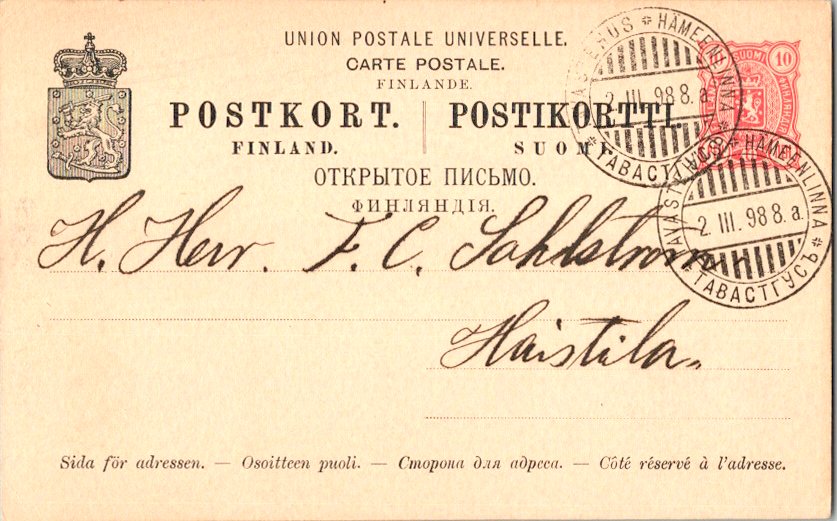 UNION POSTALE UNIVERSELLE.
CARTE POSTALE.
FINLANDE.
POSTKORT. POSTIKORTTI.
FINLAND. SUOMI.
ОТКРЫТОЕ ПИСЬМО.
ФИНЛЯНДІЯ.
10 SUOMI 10
TAVASTEHUS * HÄMEENLINNA
2. III. 98 8. a.
* ТАВАСТГУСЪ *
TAVASTEHUS * HÄMEENLINNA
2. III. 98 8. a.
* ТАВАСТГУСЪ *
H. Herr. F. C. Sahlstrom
Haistila.
Sida för adressen. — Osoitteen puoli. — Сторона для адреса. — Côté réservé à l'adresse.